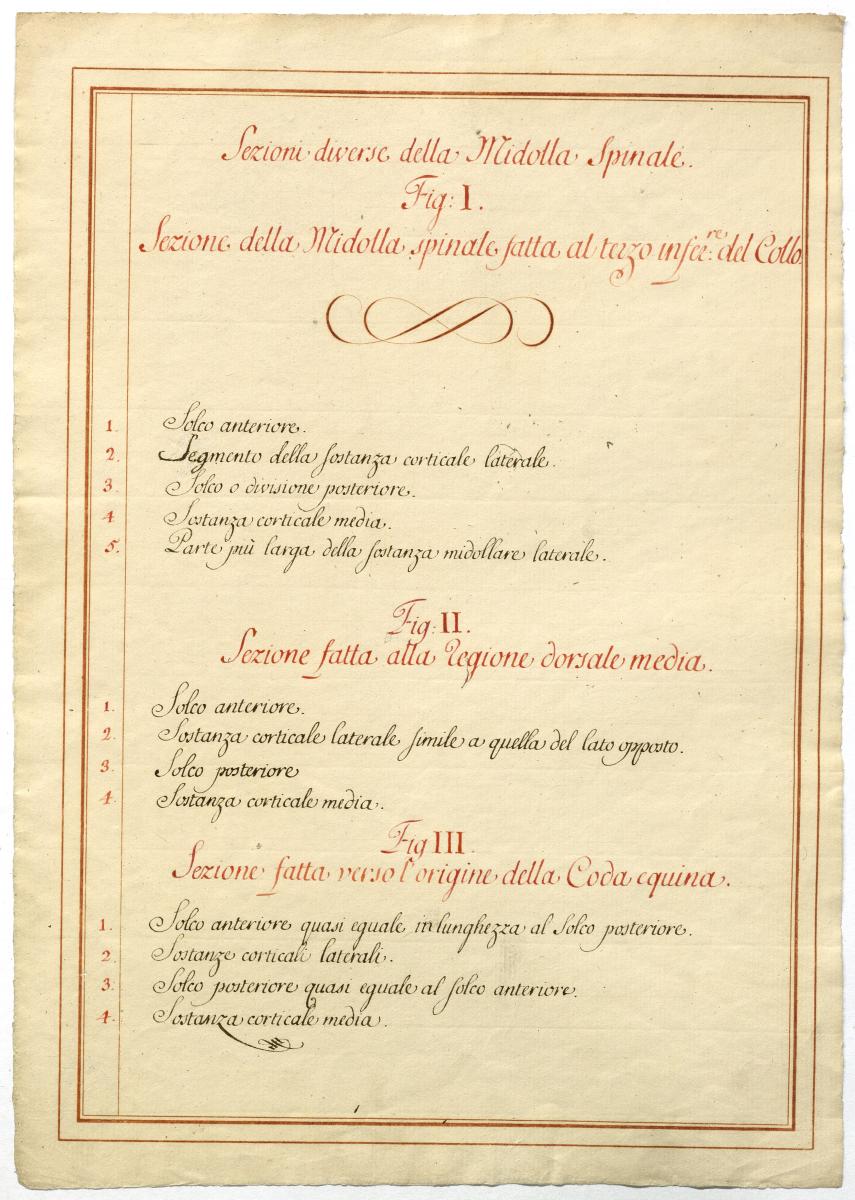 Sezioni diverse della Midolla Spinale.
Fig: I.
Sezione della Midolla spinale fatta al terzo infer:re del Collo.
1. Solco anteriore.
2. Segmento della sostanza corticale laterale.
3. Solco o divisione posteriore.
4. Sostanza corticale media.
5. Parte più larga della sostanza midollare laterale.
Fig: II.
Sezione fatta alla Regione dorsale media.
1. Solco anteriore.
2. Sostanza corticale laterale simile a quella del lato opposto.
3. Solco posteriore
4. Sostanza corticale media.
Fig III.
Sezione fatta verso l'origine della Coda equina.
1. Solco anteriore quasi eguale in lunghezza al Solco posteriore.
2. Sostanze corticali laterali.
3. Solco posteriore quasi eguale al solco anteriore.
4. Sostanza corticale media.